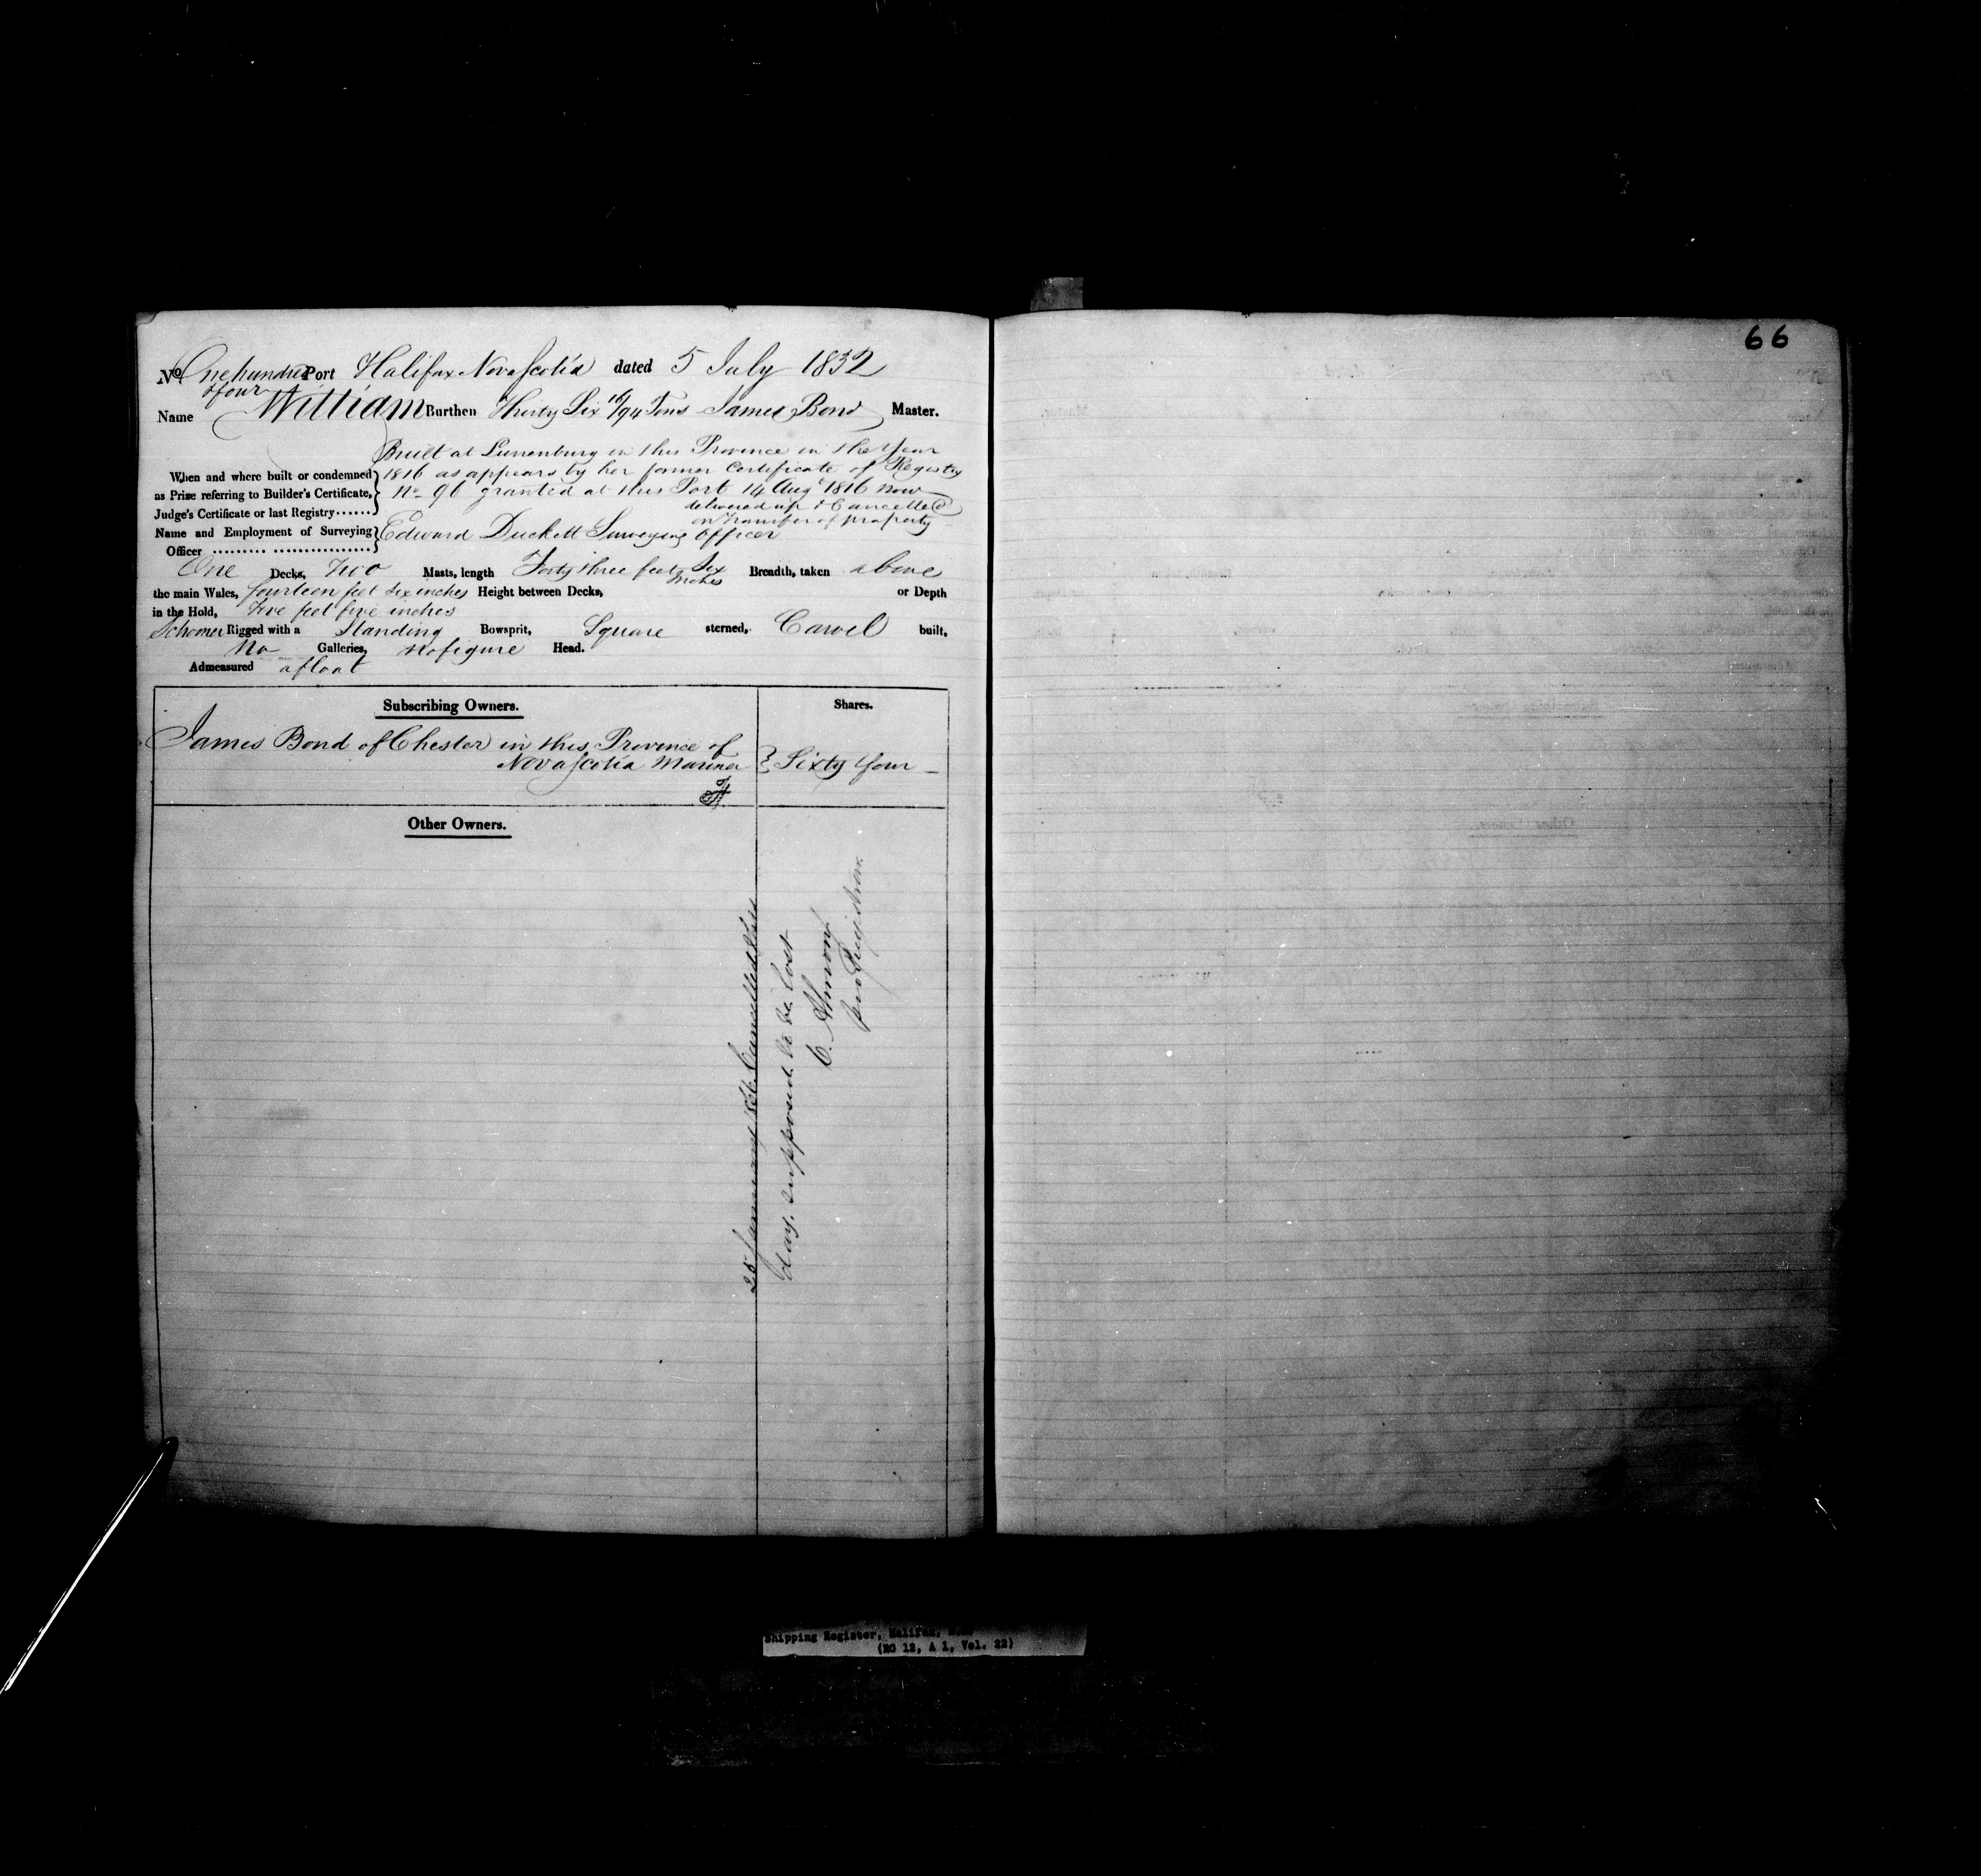 66
No. One hundred Port Halifax Nova Scotia dated 5 July 1832
& four
Name William Burthen Thirty Six 16/94 Tons James Bond Master.
Built at Lunenburg in this Province in the Year
When and where built or condemned 1816 as appears by her former Certificate of Registry
as Prize referring to Builder's Certificate, No. 96 granted at this Port 14 Augt 1816 now
Judge's Certificate or last Registry...... delivered up & Cancelled
on transfer of property
Name and Employment of Surveying Edward Duckett Surveying Officer
Officer ......... ................
One Decks, Two Masts, length Forty three feet Six Inches Breadth, taken above
the main Wales, fourteen feet Six inches Height between Decks, or Depth
in the Hold, five feet five inches
Schooner Rigged with a Standing Bowsprit, Square sterned, Carvel built,
No Galleries, no figure Head.
Admeasured afloat
Subscribing Owners. Shares.
James Bond of Chester in this Province of
Nova Scotia Mariner } Sixty four
Other Owners.
25 January Cancelled this
day. supposed to be lost
C. Almon
pro Registrar.
Shipping Register, Halifax,
(RG 12, A 1, Vol. 22)